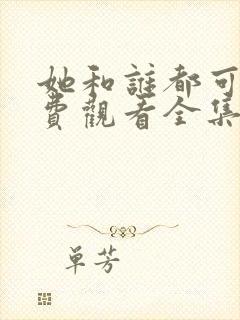 她和誰都可
費觀看全集
单芳